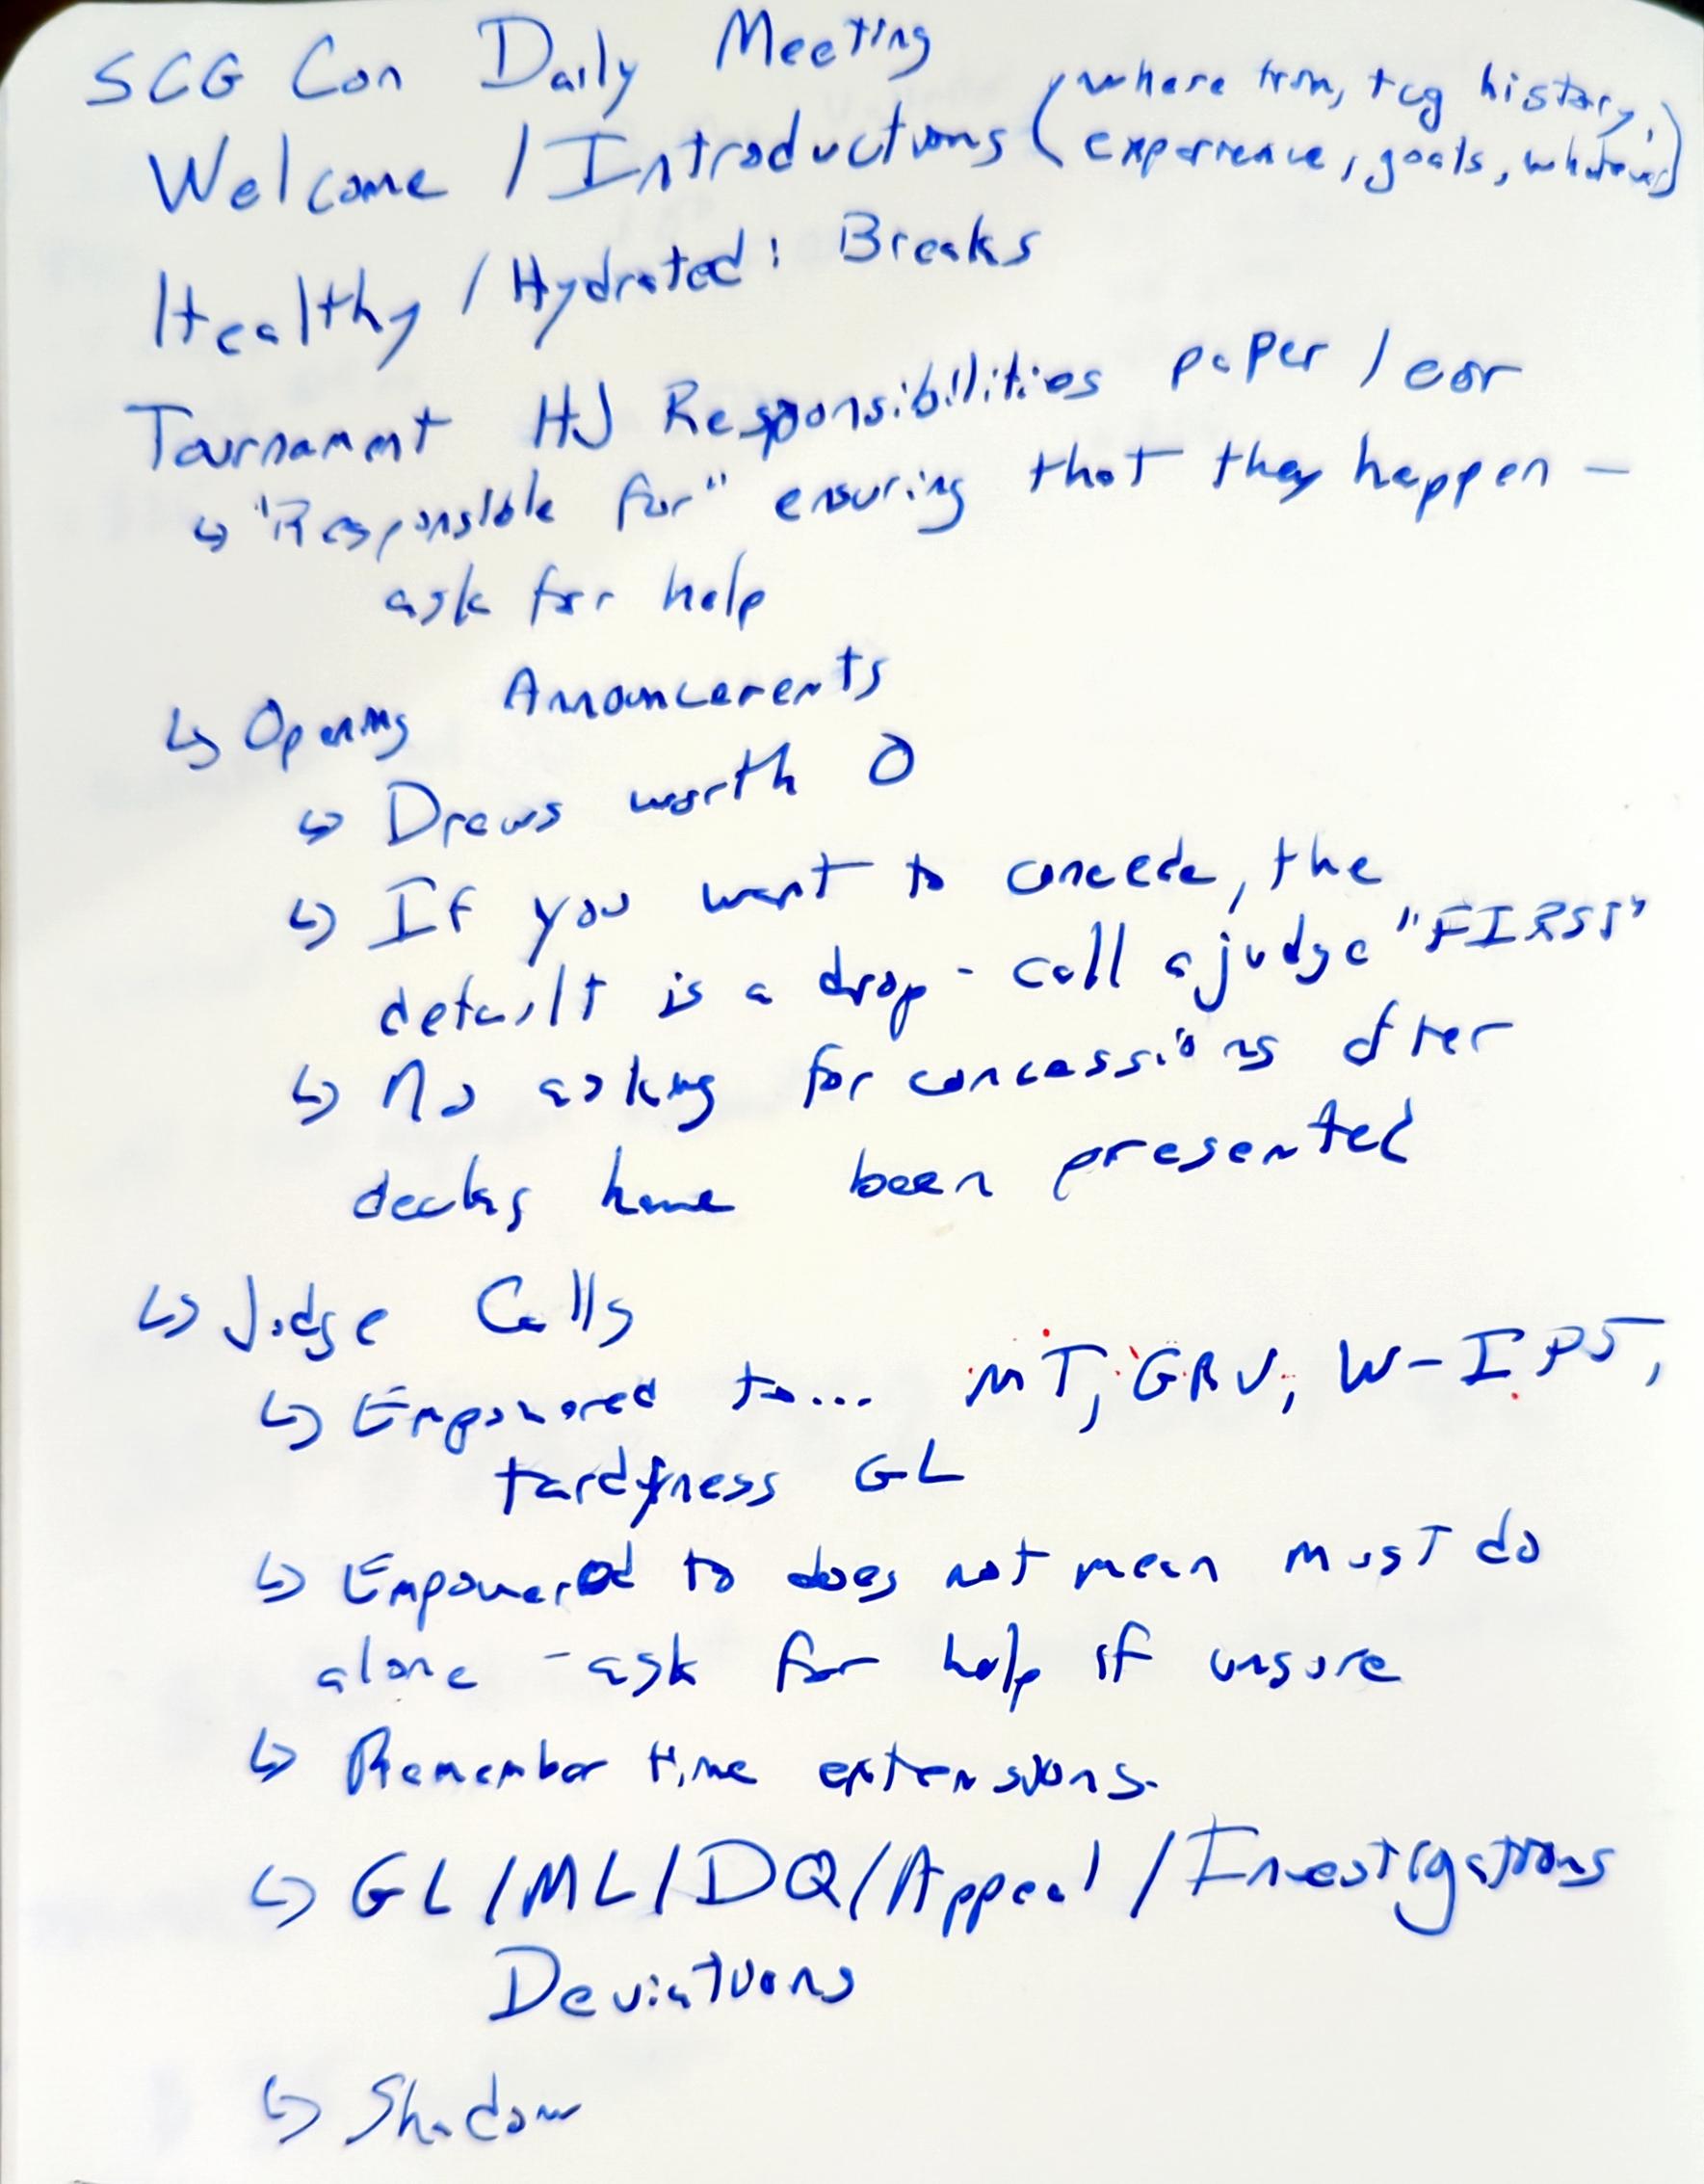 SCG Con Daily Meeting
Welcome / Introductions (where from, tcg history,
experience, goals, whatever)
Healthy / Hydrated: Breaks
Tournament HJ Responsibilities paper / eor
↳ "Responsible for" ensuring that they happen -
ask for help
↳ Opening Annoucements
↳ Draws worth 0
↳ If you want to concede, the
default is a drop - call a judge "FIRST"
↳ No asking for concessions after
decks have been presented
↳ Judge Calls
↳ Empowered to... MT, GRV, W-IPS,
tardyness GL
↳ Empowered to does not mean must do
alone - ask for help if unsure
↳ Remember time extensions.
↳ GL/ML/DQ/Appeal/Investigations
Deviations
↳ Shadow